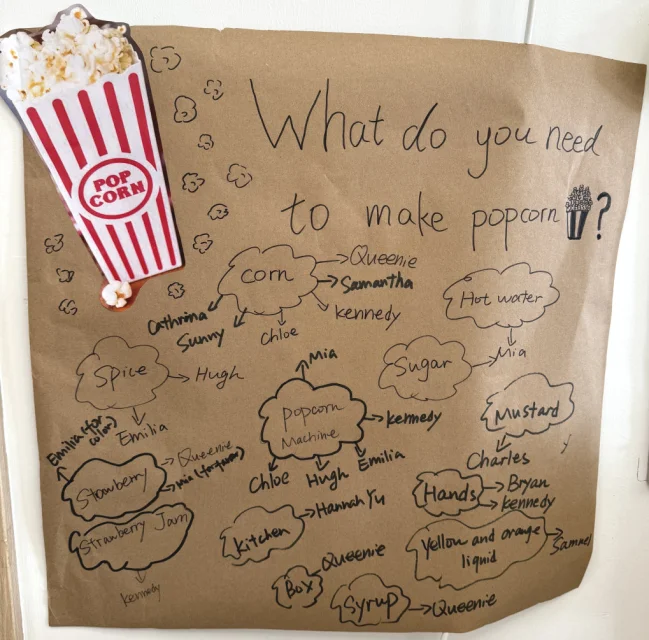 POP
CORN
What do you need
to make popcorn ?
corn
Queenie
Samantha
kennedy
Chloe
Sunny
Cathrina
Hot water
Mia
Spice
Hugh
Emilia
Sugar
Mia
Popcorn
Machine
Mia
kennedy
Emilia
Hugh
Chloe
Mustard
Charles
Strawberry
Emilia (for
color)
Queenie
Mia
Hands
Bryan
kennedy
Strawberry Jam
kennedy
Kitchen
Hannah Yu
Yellow and orange
liquid
Samuel
Box
Queenie
Syrup
Queenie